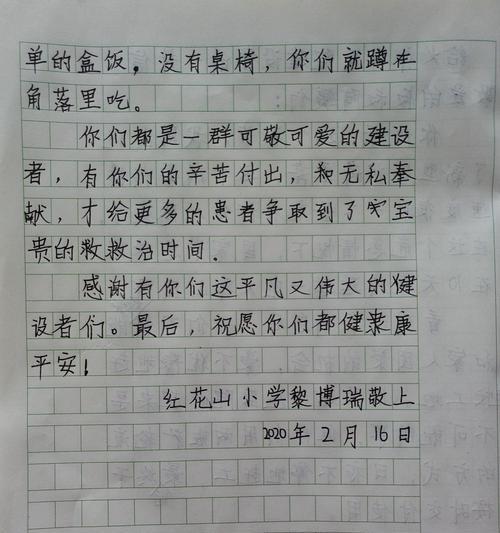 单的盒饭。没有桌椅，你们就蹲在
角落里吃。
你们都是一群可敬可爱的建设
者，有你们的辛苦付出，和无私奉
献，才给更多的患者争取到了宝
贵的救治时间.
感谢有你们这平凡又伟大的健
设者们。最后，祝愿你们都健康
平安！
红花山小学黎博瑞敬上
2020年2月16日